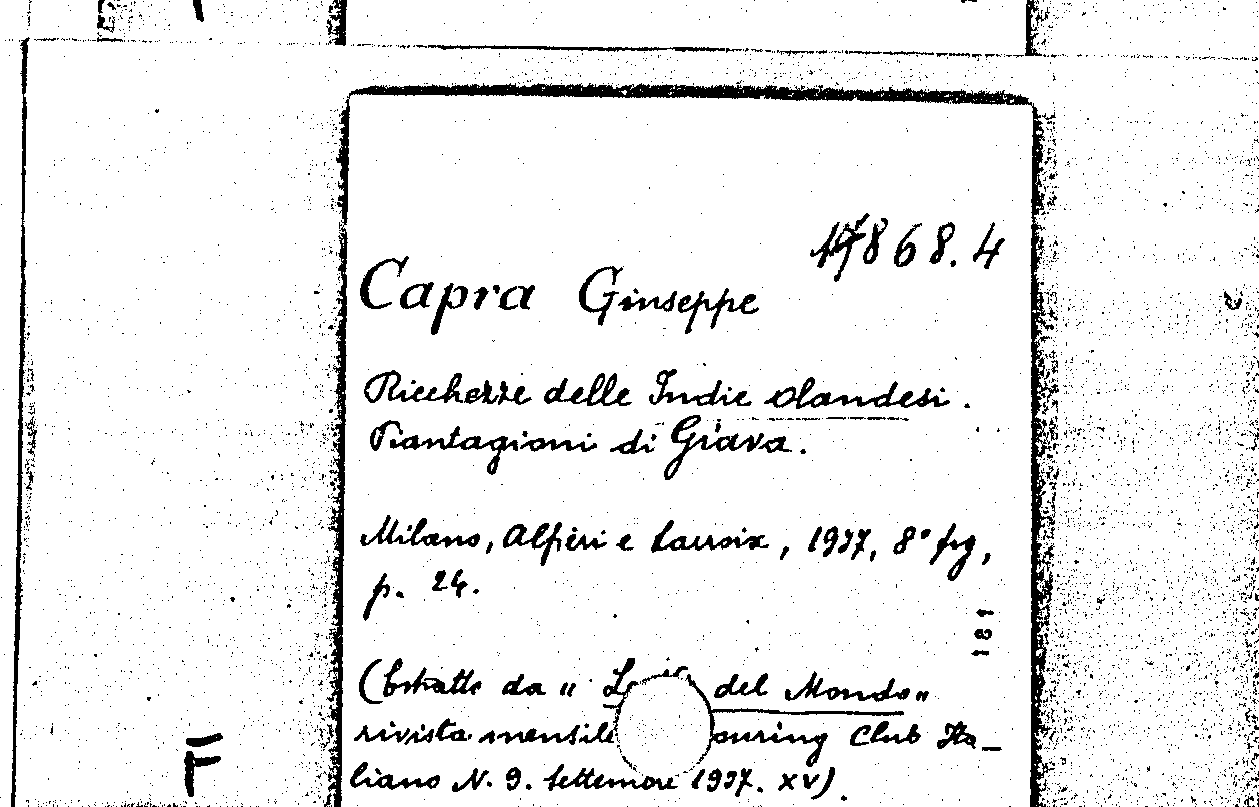 17868.4
Capra Giuseppe
Ricchezze delle Indie olandesi.
Piantagioni di Giava.
Milano, Alfieri e Lacroix, 1937, 8° fig,
p. 24.
181
(Estratto da " del Mondo"
rivista mensile ouring Club Ita-
liano N. 9. Settembre 1937. XV).
F